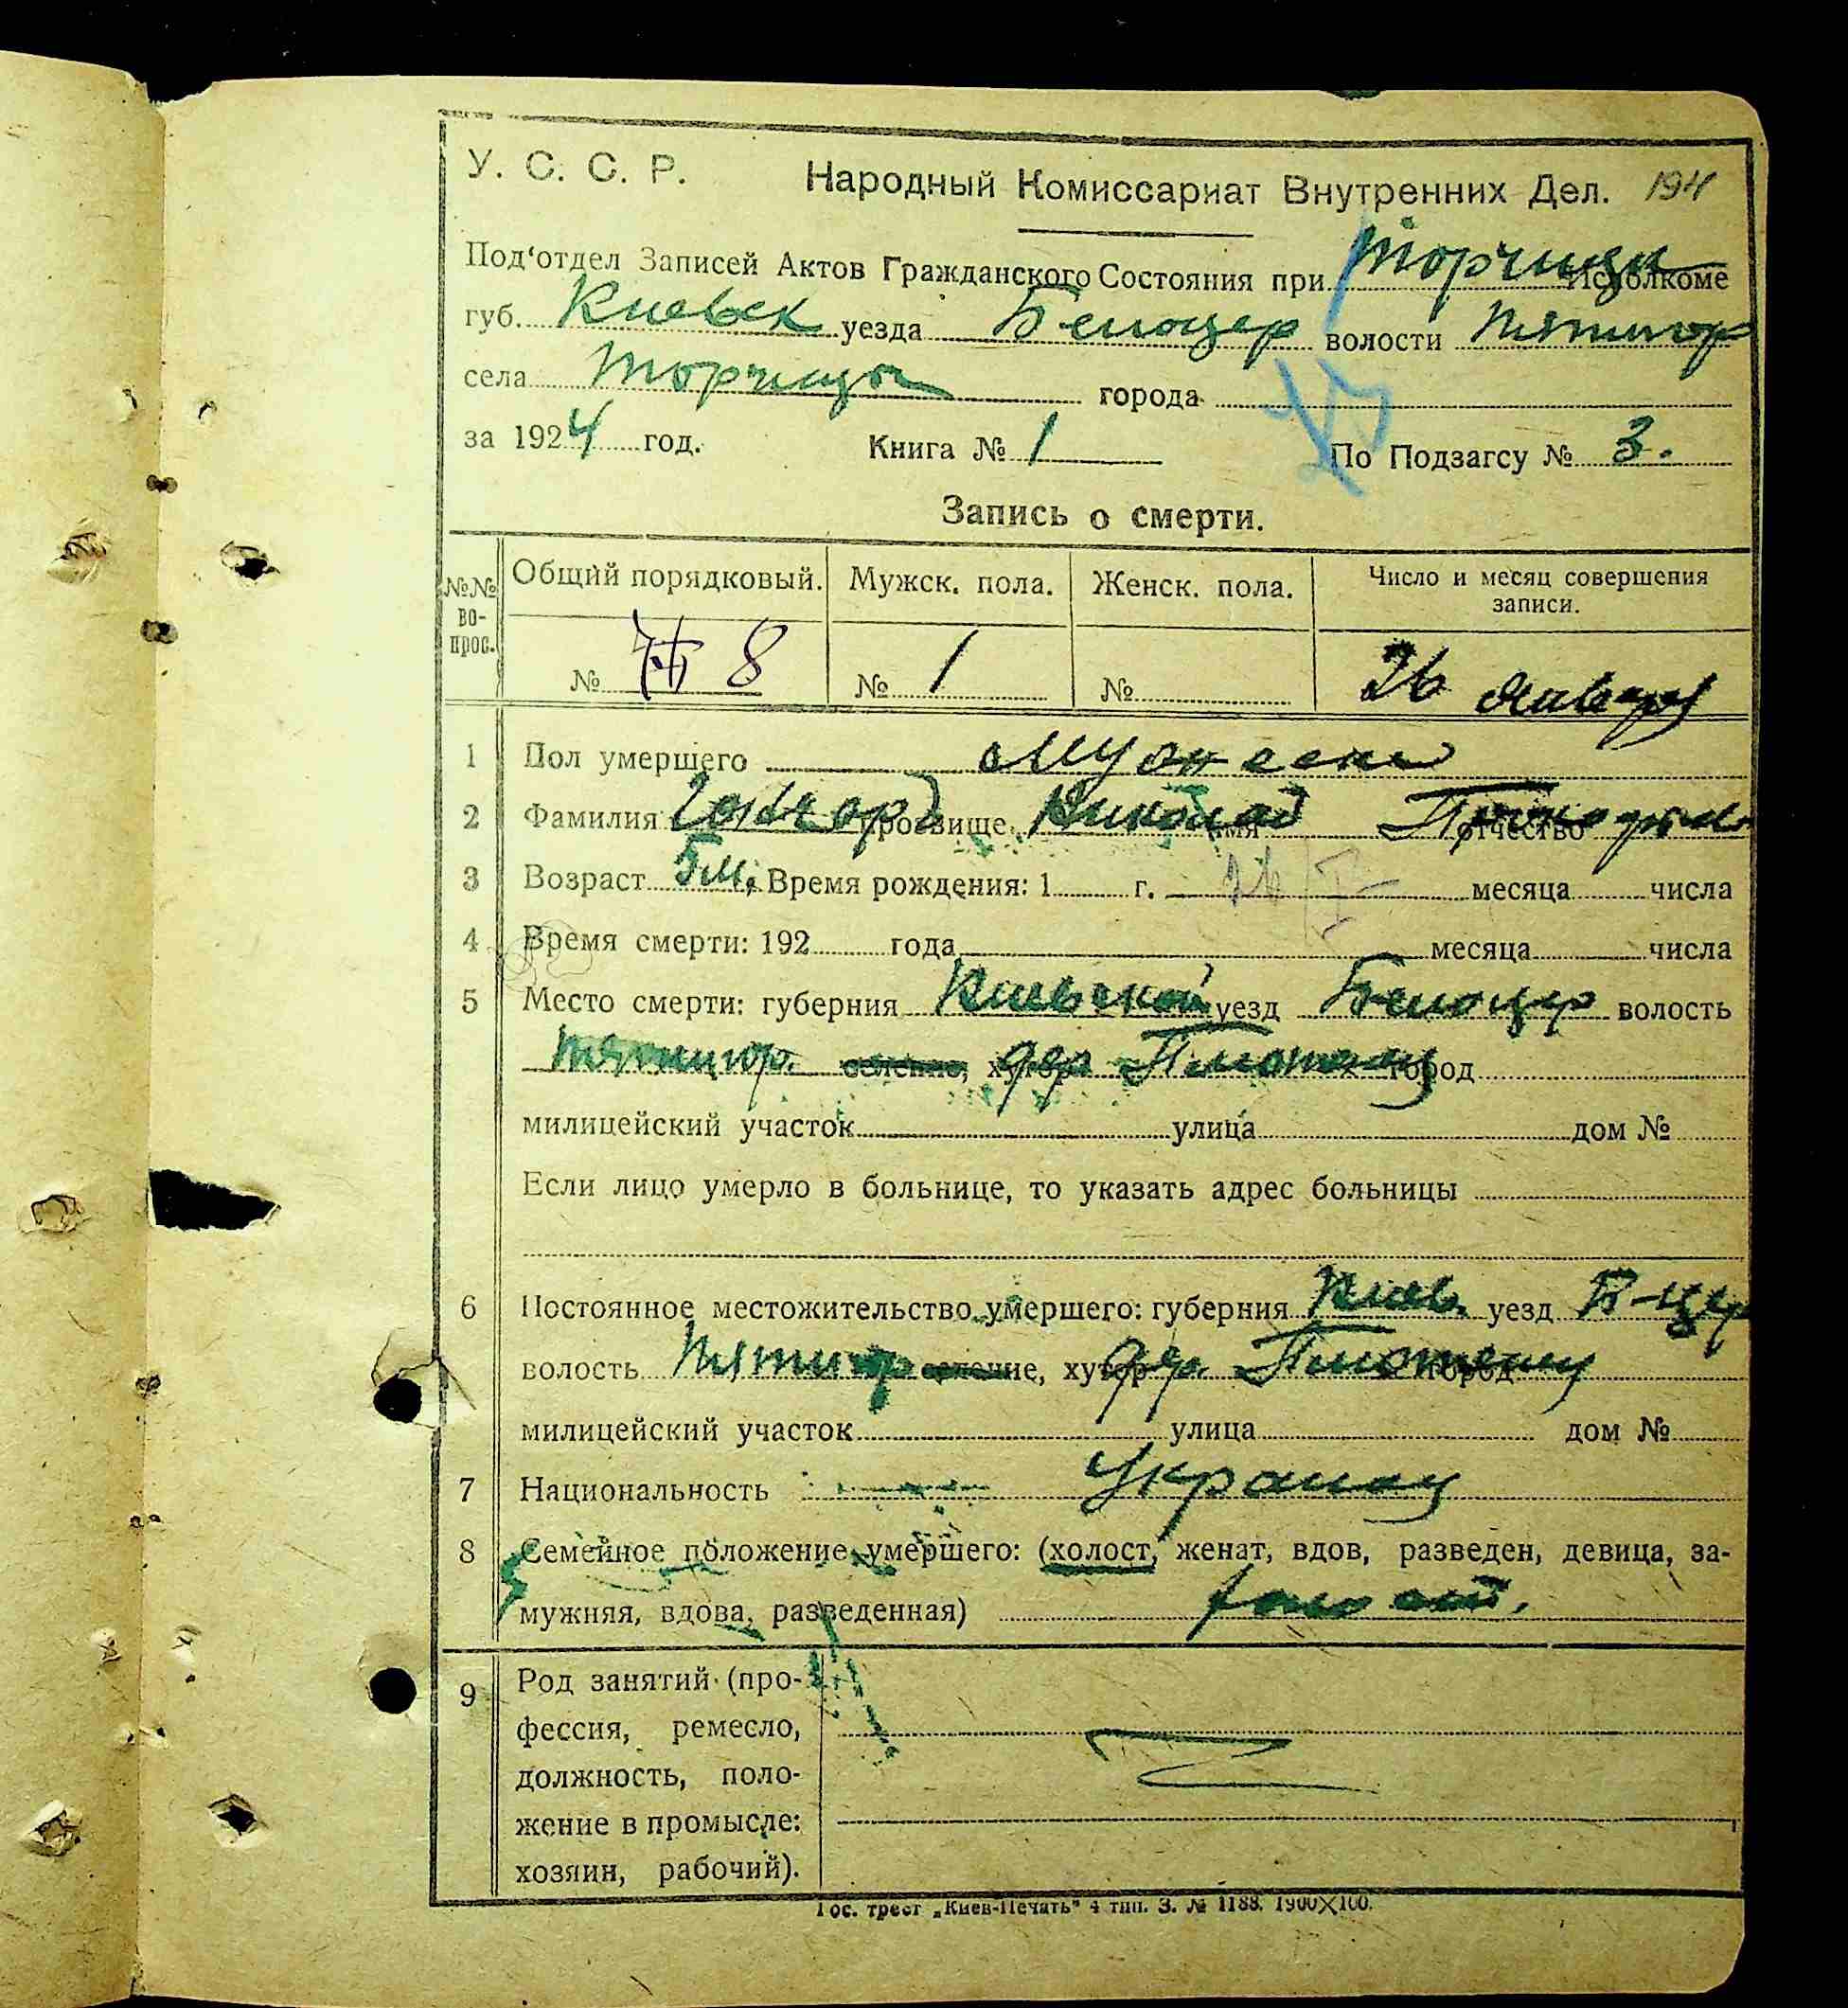 У. С. С. Р. Народный Комиссариат Внутренних Дел. 194
Под‘отдел Записей Актов Гражданского Состояния при Торчица Исполкоме
губ. Киевск уезда Белоцер волости Пятигор
села Торчица города
за 1924 год. Книга № 1 По Подзагсу № 3.
Запись о смерти.
№№ вопрос. Общий порядковый. Мужск. пола. Женск. пола. Число и месяц совершения записи.
№ 8 № 1 № 26 января
1 Пол умершего Мужеский
2 Фамилия Гончар прозвище, Николай имя отчество
3 Возраст 5 м. Время рождения: 1 г. 26/I месяца числа
4 Время смерти: 192 года месяца числа
5 Место смерти: губерния Киевской уезд Белоцер волость
Пятигор. селение, хутор дер город
милицейский участок улица дом №
Если лицо умерло в больнице, то указать адрес больницы
6 Постоянное местожительство умершего: губерния Киев. уезд Б-цер
волость Пятигор селение, хутор дер. город
милицейский участок улица дом №
7 Национальность Украинец
8 Семейное положение умершего: (холост, женат, вдов, разведен, девица, за-
мужняя, вдова, разведенная) холост.
9 Род занятий (про-
фессия, ремесло,
должность, поло-
жение в промысле:
хозяин, рабочий).
Гос. трест „Киев-Печать" 4 тип. З. № 1188. 1900×100.